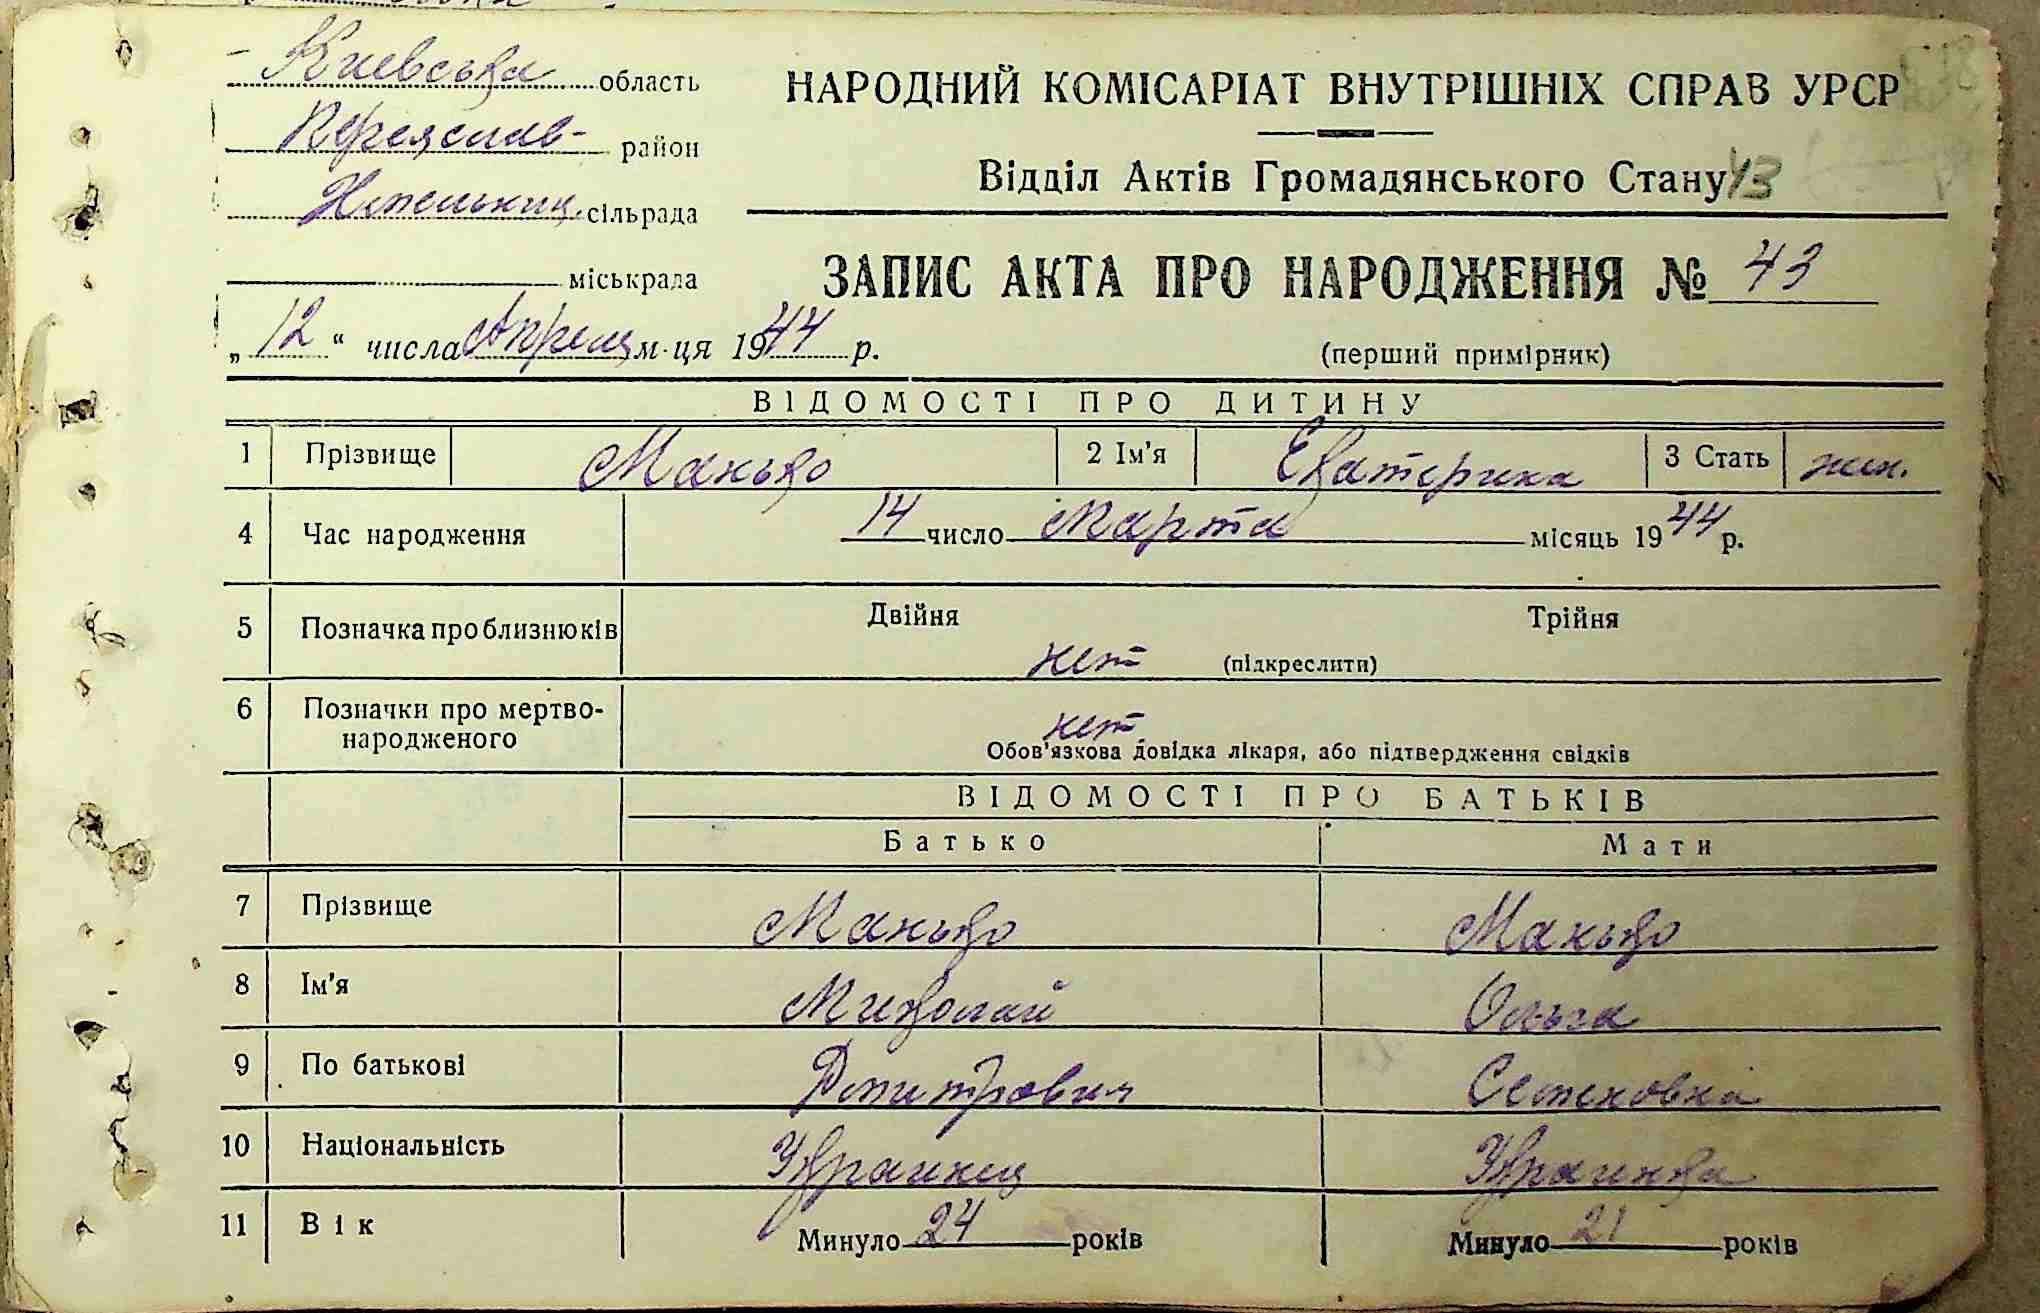 Киевська область
Переяслав- район
сільрада
міськрада
НАРОДНИЙ КОМІСАРІАТ ВНУТРІШНІХ СПРАВ УРСР
Відділ Актів Громадянського Стану 43
ЗАПИС АКТА ПРО НАРОДЖЕННЯ № 43
„ 12 “ числа Апреля м-ця 1944 р.
(перший примірник)
ВІДОМОСТІ ПРО ДИТИНУ
1 Прізвище Манько 2 Ім'я Екатерина 3 Стать жен.
4 Час народження 14 число Марта місяць 1944 р.
5 Позначка про близнюків Двійня Трійня
нет (підкреслити)
6 Позначки про мертво-
народженого нет
Обов'язкова довідка лікаря, або підтвердження свідків
ВІДОМОСТІ ПРО БАТЬКІВ
Батько Мати
7 Прізвище Манько Манько
8 Ім'я Миколай Ольга
9 По батькові Дмитрович Семеновна
10 Національність Украинец Украинка
11 Вік Минуло 24 років Минуло 21 років